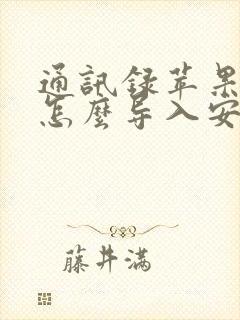 通訊録苹果
怎麼导入安
藤井满